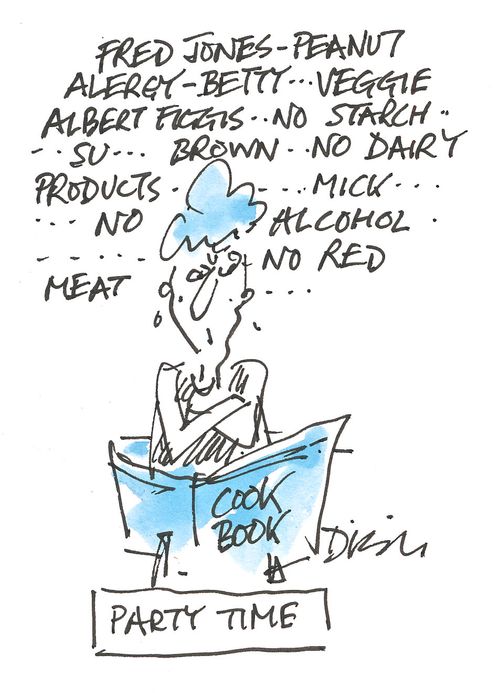 FRED JONES-PEANUT
ALERGY-BETTY...VEGGIE
ALBERT FIGGIS..NO STARCH..
..SU... BROWN..NO DAIRY
PRODUCTS. ....MICK...
... NO ALCOHOL.
..... NO RED
MEAT ....
COOK
BOOK
PARTY TIME